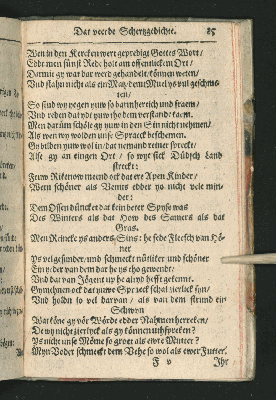 Dat veerde Schertzgedichte. 85
Wen in den Kercken wert gepredigt Gottes Wort/
Edder men sünst Rede holt am offentlicken Ort/
Darmit gy war dar werd gehandelt/können weten/
Und stahn nicht als ein Matz/dem Muel ys vul geschme-
ten/
So sind wy yegen yuw so barmhertich und fraem/
Und reden dat ydt yuw the dem verstande kaem.
Men darüm schöle gy yuw in den Sin nicht nehmen/
Als wen wy wolden unse Spraeck beschemen.
Gy bilden yuw wol in/ dat nemand reiner spreckt/
Alse gy an eingen Ort/ so wyt sick Düdsch Land
streckt:
Frow Rikenow meend ock dat ere Apen Kinder/
Weren schöner als Venus edder yo nicht vele min-
der:
Dem Ossen düncket dat kein beter Spyse was
Des Winters als dat How des Samers als dat
Gras.
Men Reincke ys anders Sins: he sede Fleesch van Hö-
ner
Ys vel gesünder/und schmeckt nütliker und schöner
Ein yeder van dem dar he ys tho gewendt/
Und dat van Jögent up he alltyd hefft gekennt.
Gy meinen ock dat yuwe Spraeck schal zierlick syn/
Und holden so vel darvan/ als van dem strund ein
Schwyn
Wat köne gy vör Wörde edder Nahmen herreken/
De wy nicht zierlyck als gy können uthspreken?
Ys nicht unse Möme so groet als ewre Mutter?
Myn Voder schmeckt dem Vehe so wol als ewer Futter.
F v Ihr